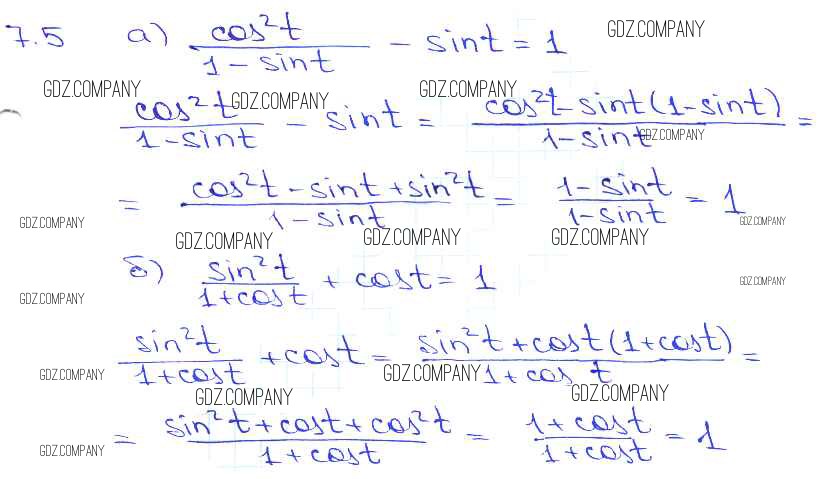 7.5 а) cos²t / (1 - sint) - sint = 1 GDZ.COMPANY
GDZ.COMPANY GDZ.COMPANY GDZ.COMPANY
cos²t / (1 - sint) - sint = (cos²t - sint(1 - sint)) / (1 - sint) =
GDZ.COMPANY
= (cos²t - sint + sin²t) / (1 - sint) = (1 - sint) / (1 - sint) = 1
GDZ.COMPANY GDZ.COMPANY
GDZ.COMPANY GDZ.COMPANY GDZ.COMPANY
б) sin²t / (1 + cost) + cost = 1
GDZ.COMPANY GDZ.COMPANY
sin²t / (1 + cost) + cost = (sin²t + cost(1 + cost)) / (1 + cos t) =
GDZ.COMPANY GDZ.COMPANY
GDZ.COMPANY GDZ.COMPANY
= (sin²t + cost + cos²t) / (1 + cost) = (1 + cost) / (1 + cost) = 1
GDZ.COMPANY